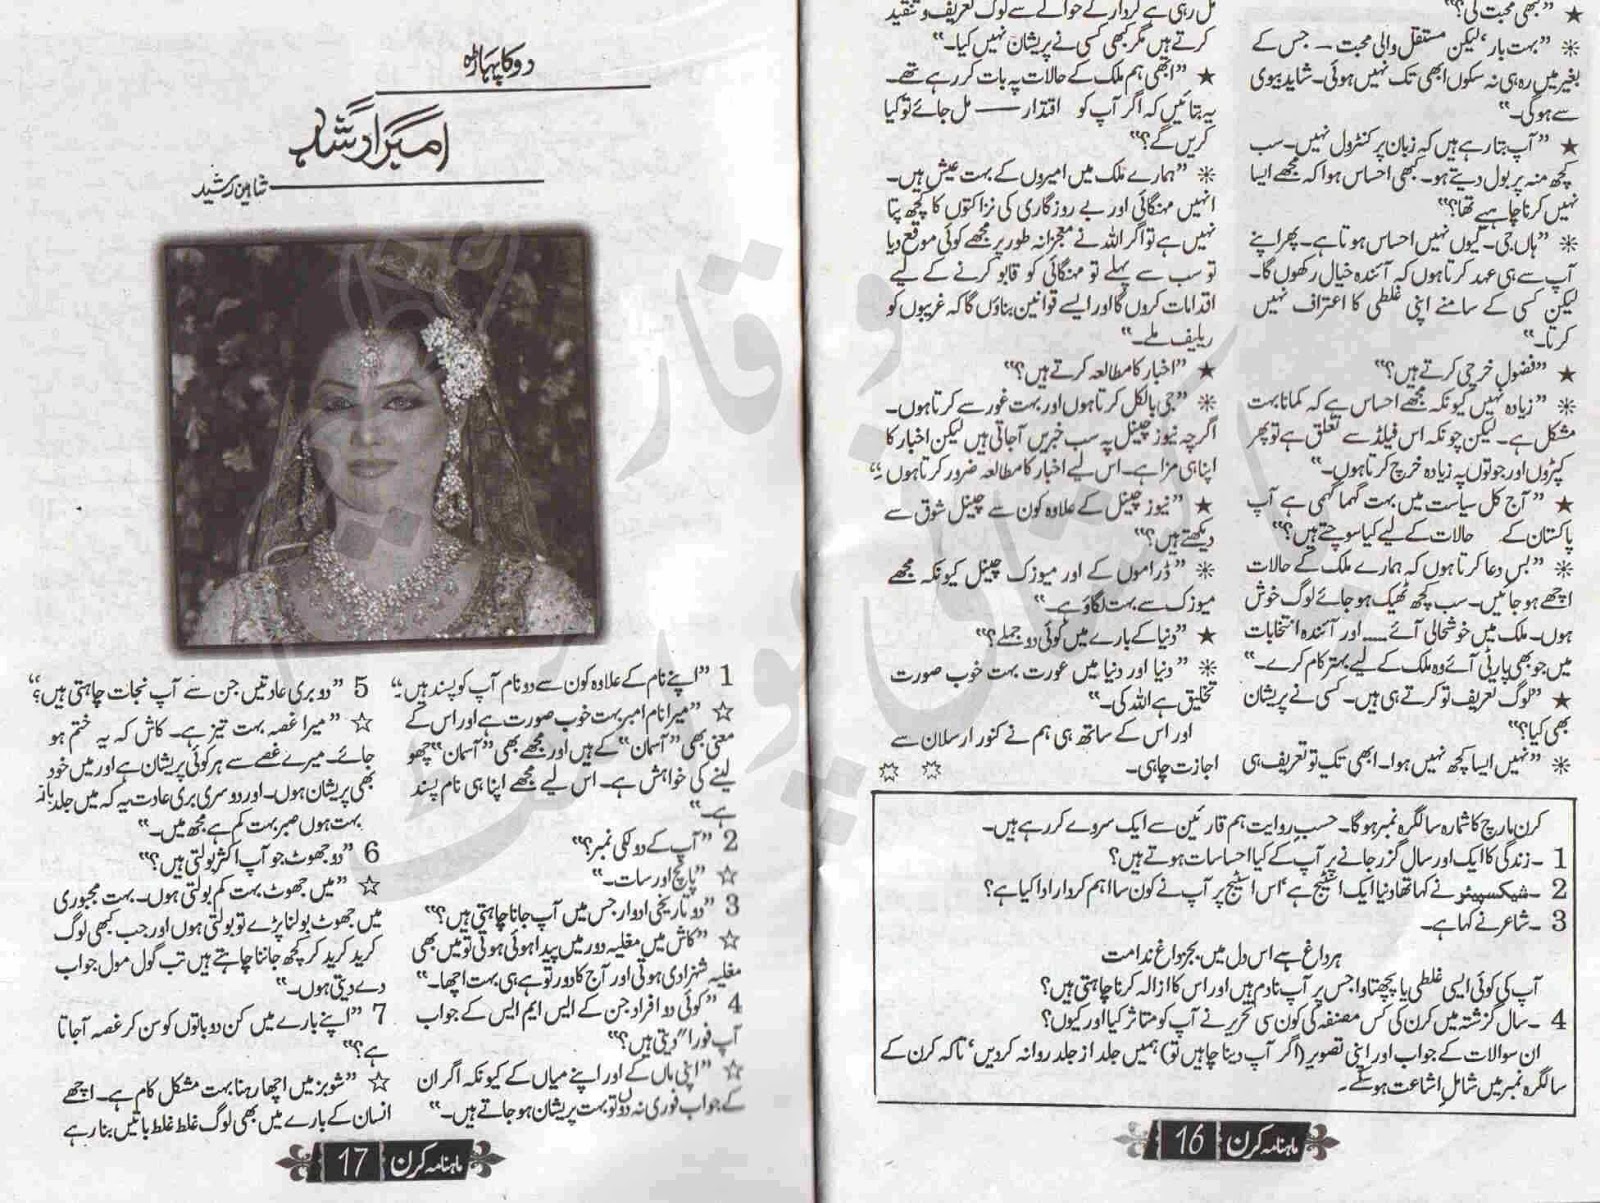 ★ ”کبھی محبت کی؟“
✳ ”بہت بار‘ لیکن مستقل والی محبت — جس کے
بغیر میں رہ ہی نہ سکوں ابھی تک نہیں ہوئی۔ شاید بیوی
سے ہوگی۔“
★ ”آپ بتا رہے ہیں کہ زبان پر کنٹرول نہیں۔ سب
کچھ منہ پر بول دیتے ہو۔ کبھی احساس ہوا کہ مجھے ایسا
نہیں کرنا چاہیے تھا؟“
✳ ”ہاں جی۔ کیوں نہیں احساس ہوتا ہے۔ پھر اپنے
آپ سے ہی عہد کرتا ہوں کہ آئندہ خیال رکھوں گا۔
لیکن کسی کے سامنے اپنی غلطی کا اعتراف نہیں
کرتا۔“
★ ”فضول خرچی کرتے ہیں؟“
✳ ”زیادہ نہیں کیونکہ مجھے احساس ہے کہ کمانا بہت
مشکل ہے۔ لیکن چونکہ اس فیلڈ سے تعلق ہے تو پھر
کپڑوں اور جوتوں پہ زیادہ خرچ کرتا ہوں۔“
★ ”آج کل سیاست میں بہت گہما گہمی ہے آپ
پاکستان کے حالات کے لیے کیا سوچتے ہیں؟“
✳ ”بس دعا کرتا ہوں کہ ہمارے ملک کے حالات
اچھے ہو جائیں۔ سب کچھ ٹھیک ہو جائے لوگ خوش
ہوں۔ ملک میں خوشحالی آئے..... اور آئندہ انتخابات
میں جو بھی پارٹی آئے وہ ملک کے لیے بہتر کام کرے۔“
★ ”لوگ تعریف تو کرتے ہی ہیں۔ کسی نے پریشان
بھی کیا؟“
✳ ”نہیں ایسا کچھ نہیں ہوا۔ ابھی تک تو تعریف ہی
مل رہی ہے کردار کے حوالے سے لوگ تعریف و تنقید
کرتے ہیں مگر کبھی کسی نے پریشان نہیں کیا۔“
★ ”ابھی ہم ملک کے حالات پہ بات کر رہے تھے۔
یہ بتائیں کہ اگر آپ کو اقتدار — مل جائے تو کیا
کریں گے؟“
✳ ”ہمارے ملک میں امیروں کے بہت عیش ہیں۔
انہیں مہنگائی اور بے روزگاری کی نزاکتوں کا کچھ پتا
نہیں ہے تو اگر اللہ نے معجزانہ طور پر مجھے کوئی موقع دیا
تو سب سے پہلے تو مہنگائی کو قابو کرنے کے لیے
اقدامات کروں گا اور ایسے قوانین بناؤں گا کہ غریبوں کو
ریلیف ملے۔“
★ ”اخبار کا مطالعہ کرتے ہیں؟“
✳ ”جی بالکل کرتا ہوں اور بہت غور سے کرتا ہوں۔
اگرچہ نیوز چینل پہ سب خبریں آجاتی ہیں لیکن اخبار کا
اپنا ہی مزا ہے۔ اس لیے اخبار کا مطالعہ ضرور کرتا ہوں۔“
★ ”نیوز چینل کے علاوہ کون سے چینل شوق سے
دیکھتے ہیں؟“
✳ ”ڈراموں کے اور میوزک چینل کیونکہ مجھے
میوزک سے بہت لگاؤ ہے۔“
★ ”دنیا کے بارے میں کوئی دو جملے؟“
✳ ”دنیا اور دنیا میں عورت بہت خوب صورت
تخلیق ہے اللہ کی۔“
اور اس کے ساتھ ہی ہم نے کنور ارسلان سے
اجازت چاہی۔ ☆ ☆
کرن مارچ کا شمارہ سالگرہ نمبر ہوگا۔ حسب روایت ہم قارئین سے ایک سروے کر رہے ہیں۔
1 ۔ زندگی کا ایک اور سال گزر جانے پر آپ کے کیا احساسات ہوتے ہیں؟
2 ۔ شیکسپیئر نے کہا تھا دنیا ایک اسٹیج ہے‘ اس اسٹیج پر آپ نے کون سا اہم کردار ادا کیا ہے؟
3 ۔ شاعر نے کہا ہے۔
ہر داغ ہے اس دل میں بجز داغ ندامت
آپ کی کوئی ایسی غلطی یا پچھتاوا جس پر آپ نادم ہیں اور اس کا ازالہ کرنا چاہتی ہیں؟
4 ۔ سال گزشتہ میں کرن کی کس مصنفہ کی کون سی تحریر نے آپ کو متاثر کیا اور کیوں؟
ان سوالات کے جواب اور اپنی تصویر (اگر آپ دینا چاہیں تو) ہمیں جلد از جلد روانہ کردیں‘ تاکہ کرن کے
سالگرہ نمبر میں شامل اشاعت ہو سکے۔
ماہنامہ کرن 16
دو کا پہاڑہ
امبر ارشد
شاہین رشید
1 ”اپنے نام کے علاوہ کون سے دو نام آپ کو پسند ہیں۔“
☆ ”میرا نام امبر بہت خوب صورت ہے اور اس کے
معنی بھی ”آسمان“ کے ہیں اور مجھے بھی ”آسمان“ چھو
لینے کی خواہش ہے۔ اس لیے مجھے اپنا ہی نام پسند
ہے۔“
2 ”آپ کے دو لکی نمبر؟“
☆ ”پانچ اور سات۔“
3 ”دو تاریخی ادوار جس میں آپ جانا چاہتی ہیں؟“
☆ ”کاش میں مغلیہ دور میں پیدا ہوئی ہوتی تو میں بھی
مغلیہ شہزادی ہوتی اور آج کا دور تو ہے ہی بہت اچھا۔“
4 ”کوئی دو افراد جن کے ایس ایم ایس کے جواب
آپ فورا“ دیتی ہیں؟“
☆ ”اپنی ماں کے اور اپنے میاں کے کیونکہ اگر ان
کے جواب فوری نہ دوں تو بہت پریشان ہو جاتے ہیں۔“
5 ”دو بری عادتیں جن سے آپ نجات چاہتی ہیں؟“
☆ ”میرا غصہ بہت تیز ہے۔ کاش کہ یہ ختم ہو
جائے۔ میرے غصے سے ہر کوئی پریشان ہے اور میں خود
بھی پریشان ہوں۔ اور دوسری بری عادت یہ کہ میں جلد باز
بہت ہوں صبر بہت کم ہے مجھ میں۔“
6 ”دو جھوٹ جو آپ اکثر بولتی ہیں؟“
☆ ”میں جھوٹ بہت کم بولتی ہوں۔ بہت مجبوری
میں جھوٹ بولنا پڑے تو بولتی ہوں اور جب کبھی لوگ
کرید کرید کر کچھ جاننا چاہتے ہیں تب گول مول جواب
دے دیتی ہوں۔“
7 ”اپنے بارے میں کن دو باتوں کو سن کر غصہ آجاتا
ہے؟“
☆ ”شوبز میں اچھا رہنا بہت مشکل کام ہے۔ اچھے
انسان کے بارے میں بھی لوگ غلط غلط باتیں بنا رہے
ماہنامہ کرن 17